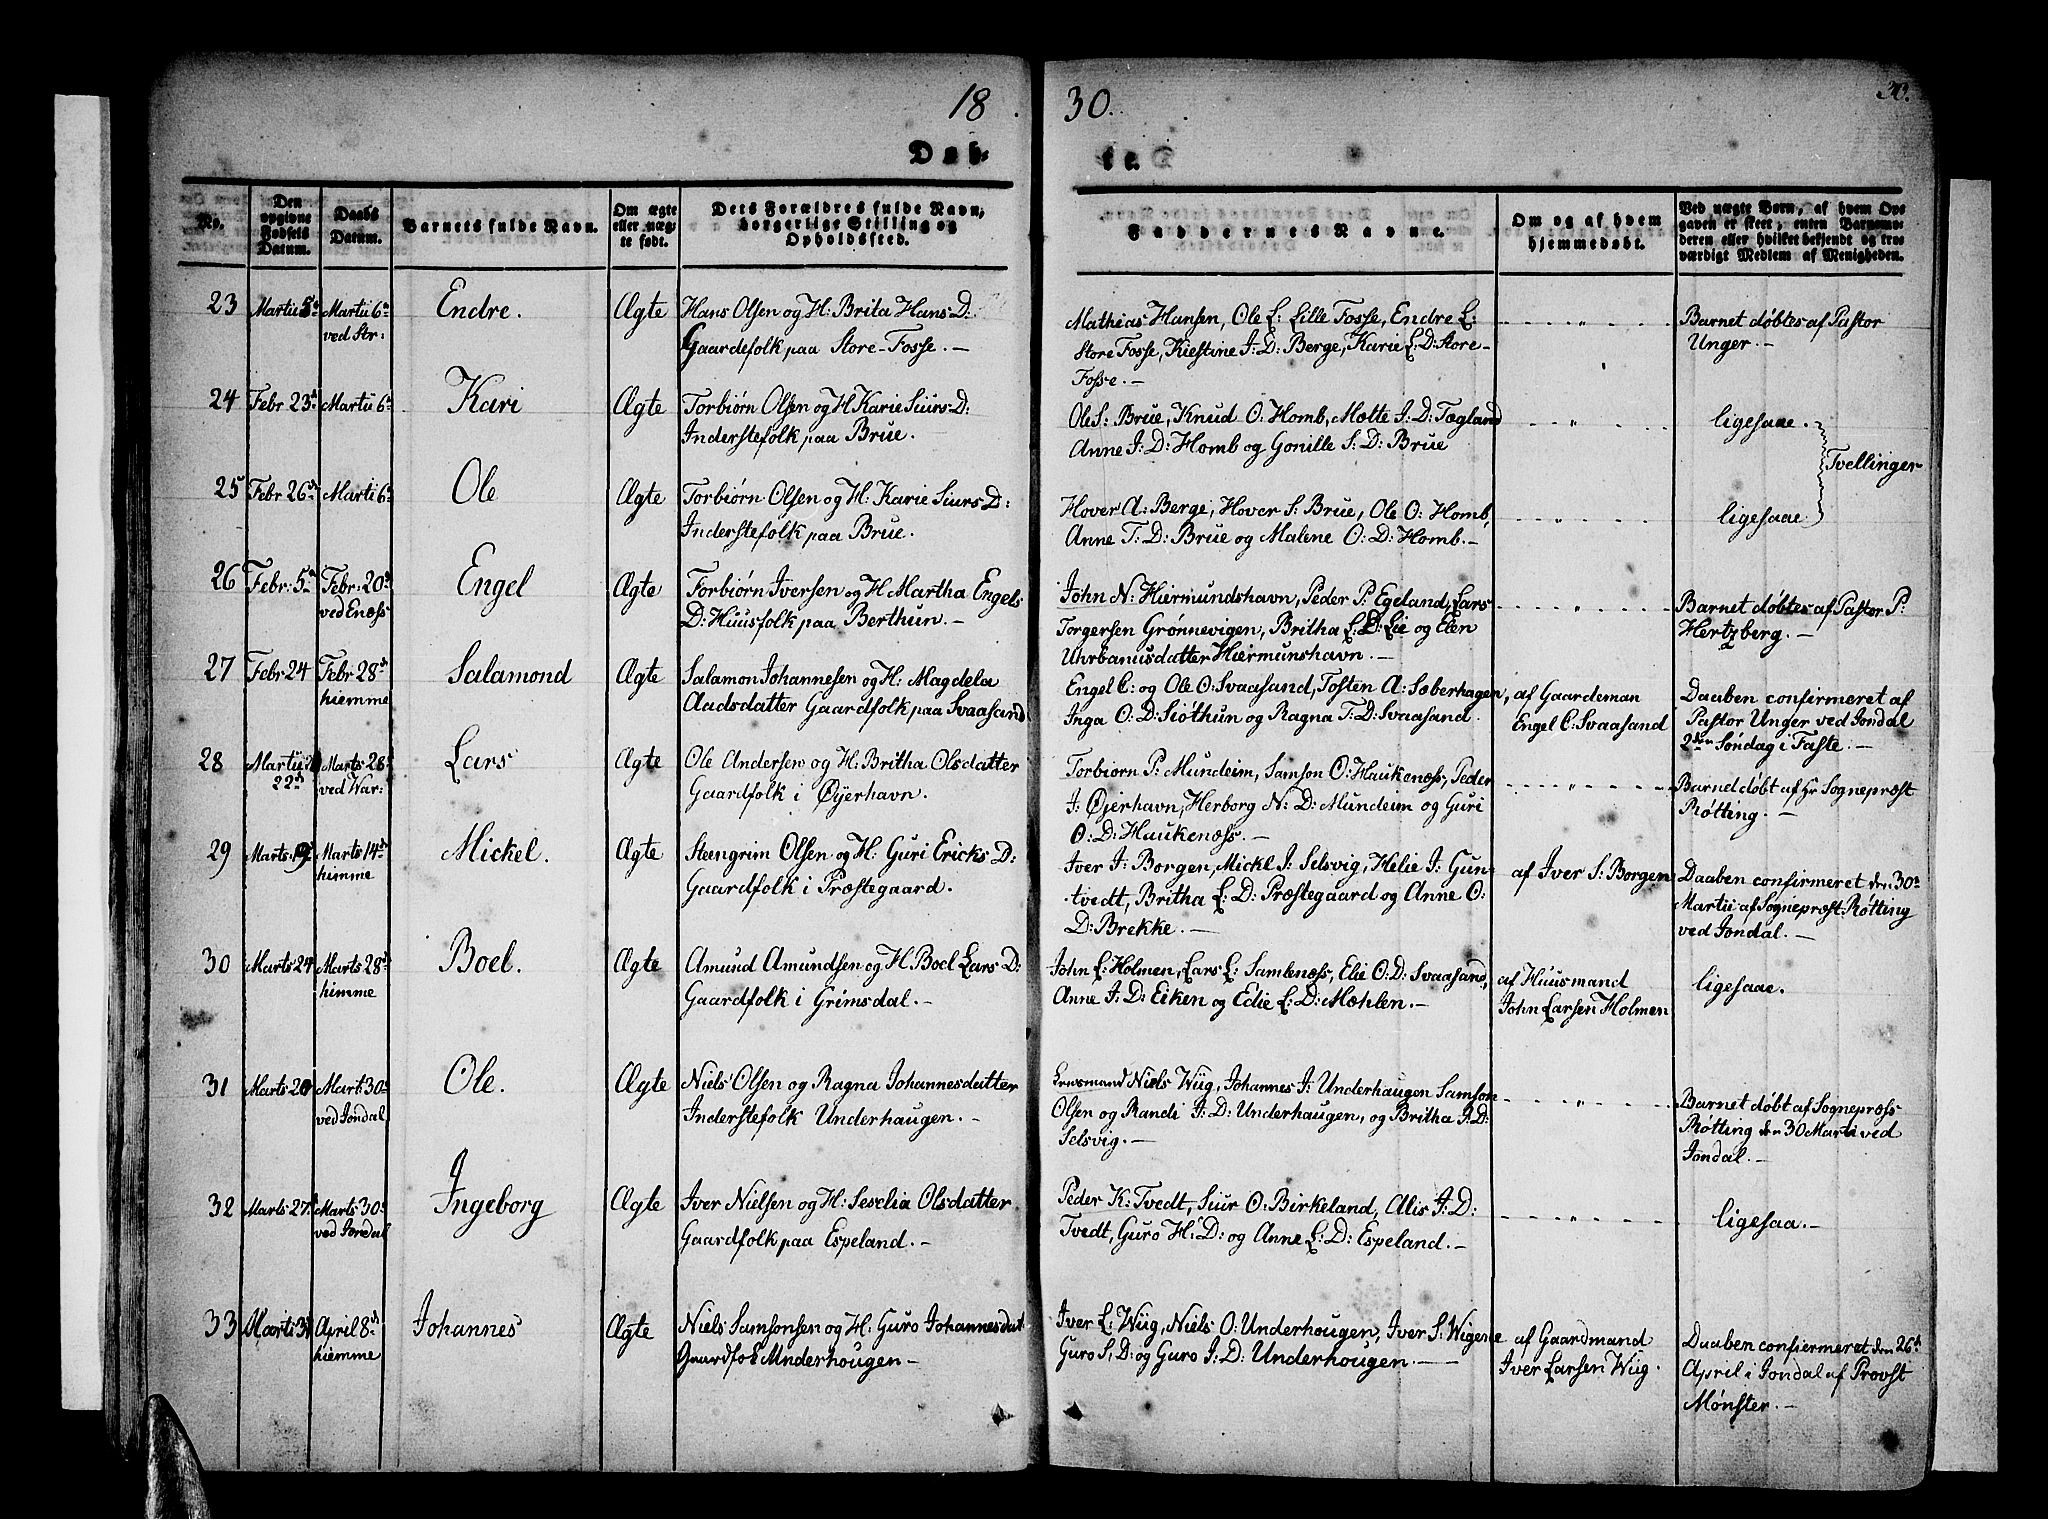 18 30.
30.
Døb- te.
No.
Den opgivne Fødsels Datum.
Daabs Datum.
Barnets fulde Navn.
Om ægte eller uægte født.
Dets Forældres fulde Navn, borgerlige Stilling og Opholdssted.
Faddernes Navne.
Om og af hvem hjemmedøbt.
Ved uægte Børn, af hvem Opgaven er skeet, enten Barnemoderen eller hvilket bekjendt og troværdigt Medlem af Menigheden.
23 Martii 5te Martii 6te
ved Str:
Endre.
Ægte
Hans Olsen og H: Brita Hans D:
Gaardefolk paa Store-Fosse. —
Mathias Hansen, Ole L: Lille Fosse, Endre L:
Store Fosse, Kiestine J: D: Berge, Karie L: D: Store-
Fosse. —
Barnet døbtes af Pastor
Unger. —
24 Febr 23de Martii 6te
Kari
Ægte
Torbiørn Olsen og H. Karie Siurs D:
Inderstefolk paa Brue.
Ole S: Brue, Knud O: Homb, Mætte J: D: Tægland
Anne J: D: Homb og Gonille S: D: Brue
ligesaae.
Tvellinger
25 Febr 26de Marti 6te
Ole
Ægte
Torbiørn Olsen og H: Karie Siurs D:
Inderstefolk paa Brue.
Hover A: Berge, Hover S: Brue, Ole O: Homb,
Anne T: D: Brue og Malene O: D: Homb. —
ligesaae
26 Febr: 5te Febr: 20de
ved Enæss
Engel
Ægte
Torbiørn Iversen og H Martha Engels
D: Huusfolk paa Berthun. —
John N: Hiermundshavn, Peder P: Egeland, Lars
Torgersen Grønnevigen, Britha L: D: Lie og Elen
Uhrbanusdatter Hiermunshavn. —
Barnet døbtes af Pastor P:
Hertzberg. —
27 Febr 24 Febr 28de
hiemme
Salamond
Ægte
Salamon Johannesen og H: Magdela
Aadsdatter Gaardfolk paa Svaasand
Engel C: og Ole O: Svaasand, Tosten A: Sæberhagen,
Inga O: D: Siøthun og Ragna T: D: Svaasand.
af Gaardeman
Engel C: Svaasand
Daaben confirmeret af
Pastor Unger ved Jondal
2den Søndag i Faste. —
28 Martii
22de
Marts 28de
ved War:
Lars
Ægte
Ole Andersen og H: Britha Olsdatter
Gaardfolk i Øyerhavn.
Torbiørn P: Mundeim, Samson O: Haukenæss, Peder
J: Øjerhavn, Herborg N: D: Mundeim og Guri
O: D: Haukenæss. —
Barnet døbt af Hr Sognepræst
Røtting. —
29 Marts Marts 14de
himme
Mickel.
Ægte
Steengrim Olsen og H: Guri Ericks D:
Gaardfolk i Præstegaard.
Iver J: Borgen, Mickl J: Selsvig, Helie J: Gun-
tvedt, Britha L: D: Præstegaard og Anne O:
D: Brekke. —
af Iver S: Borgen
Daaben confirmeret den 30te
Martii af Sognepræst Røtting
ved Jondal. —
30 Marts 24 Marts 28de
himme
Boel.
Ægte
Amund Amundsen og H. Boel Lars D:
Gaardfolk i Grimsdal. —
John L: Holmen, Lars L: Samlenæss, Elie O: D: Svaasand,
Anne J: D: Eiken og Edie L: D: Mæhlen. —
af Huusmand
John Larsen Holmen
ligesaae.
31 Marts 20 Marts 30te
ved Jondal
Ole.
Ægte
Niels Olsen og Ragna Johannesdatter
Inderstefolk Underhaugen. —
Lensmand Niels Wiig, Johannes J: Underhaugen Samson
Olsen og Randi J: D: Underhaugen, og Britha J: D:
Selsvig. —
Barnet døbt af Sognepræss
Røtting den 30 Marti ved
Jondal. —
32 Marts 27. Marts 30te
ved Jondal
Ingeborg
Ægte
Iver Nielsen og H: Seselia Olsdatter
Gaardfolk paa Espeland. —
Peder K: Tvedt, Siur O: Birkeland, Alis J: D:
Tvedt, Guro H: D: og Anne L: D: Espeland. —
ligesaa. —
33 Marts 31 April 8de
hiemme
Johannes
Ægte
Niels Samsonsen og H: Guro Johannesdat
Gaardfolk Underhougen —
Iver L: Wiig, Niels O: Underhougen, Iver S: Wigene
Guro S, D: og Guro J: D: Underhougen. —
af Gaardmand
Iver Larsen Wiig.
Daaben confiermeret den 26te
April i Jondal af Provst
Mønster. —